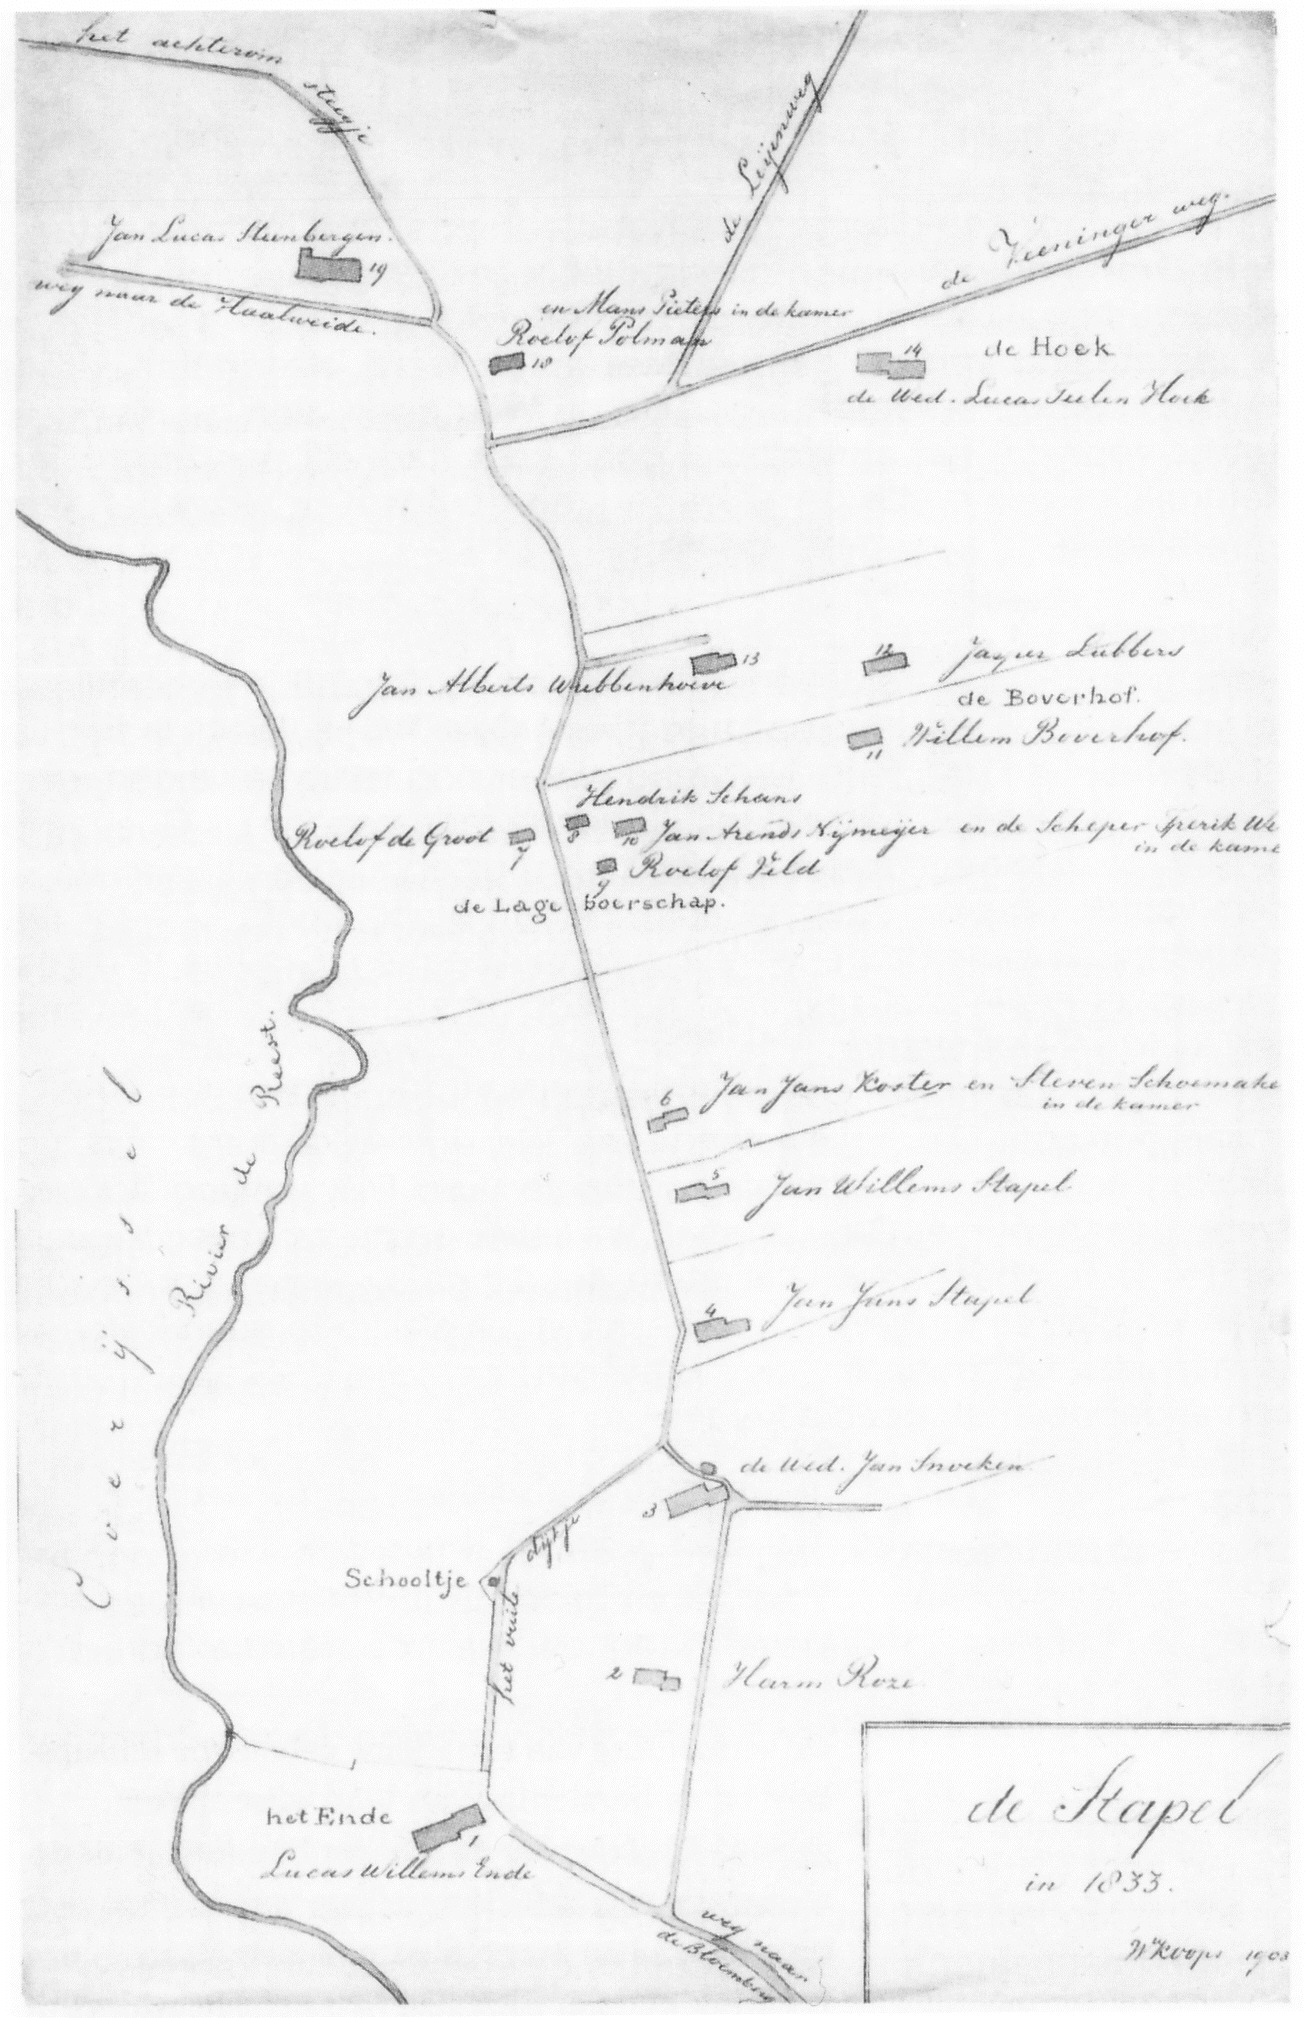 het achterom
steegje
de Leijenweg
de Vieeninger weg.
Jan Lucas Steenbergen.
19
weg naar de Haalweide.
en Mans Pieters in de kamer
Roelof Polman
18
14
de Hoek
de Wed. Lucas Teelen Hoek
13
12
Jasper Lubbers
Jan Alberts Wubbenhoeve
de Boverhof.
11
Willem Boverhof.
Hendrik Schans
Roelof de Groot
7
8
10
Jan Arends Nijmeijer en de Scheper
in de kame
9
Roelof Veld
de Lage boerschap.
Overijssel
Rivier de Reest.
6
Jan Jans Koster en Steven Schoemake
in de kamer
5
Jan Willems Stapel
4
Jan Jans Stapel
de Wed. Jan Snoeken
3
het vuile dijkje
Schooltje
2
Harm Roze
het Ende
1
Lucas Willems Ende
weg naar
de Bloemberg
de Stapel
in 1833.
W Koops 1903